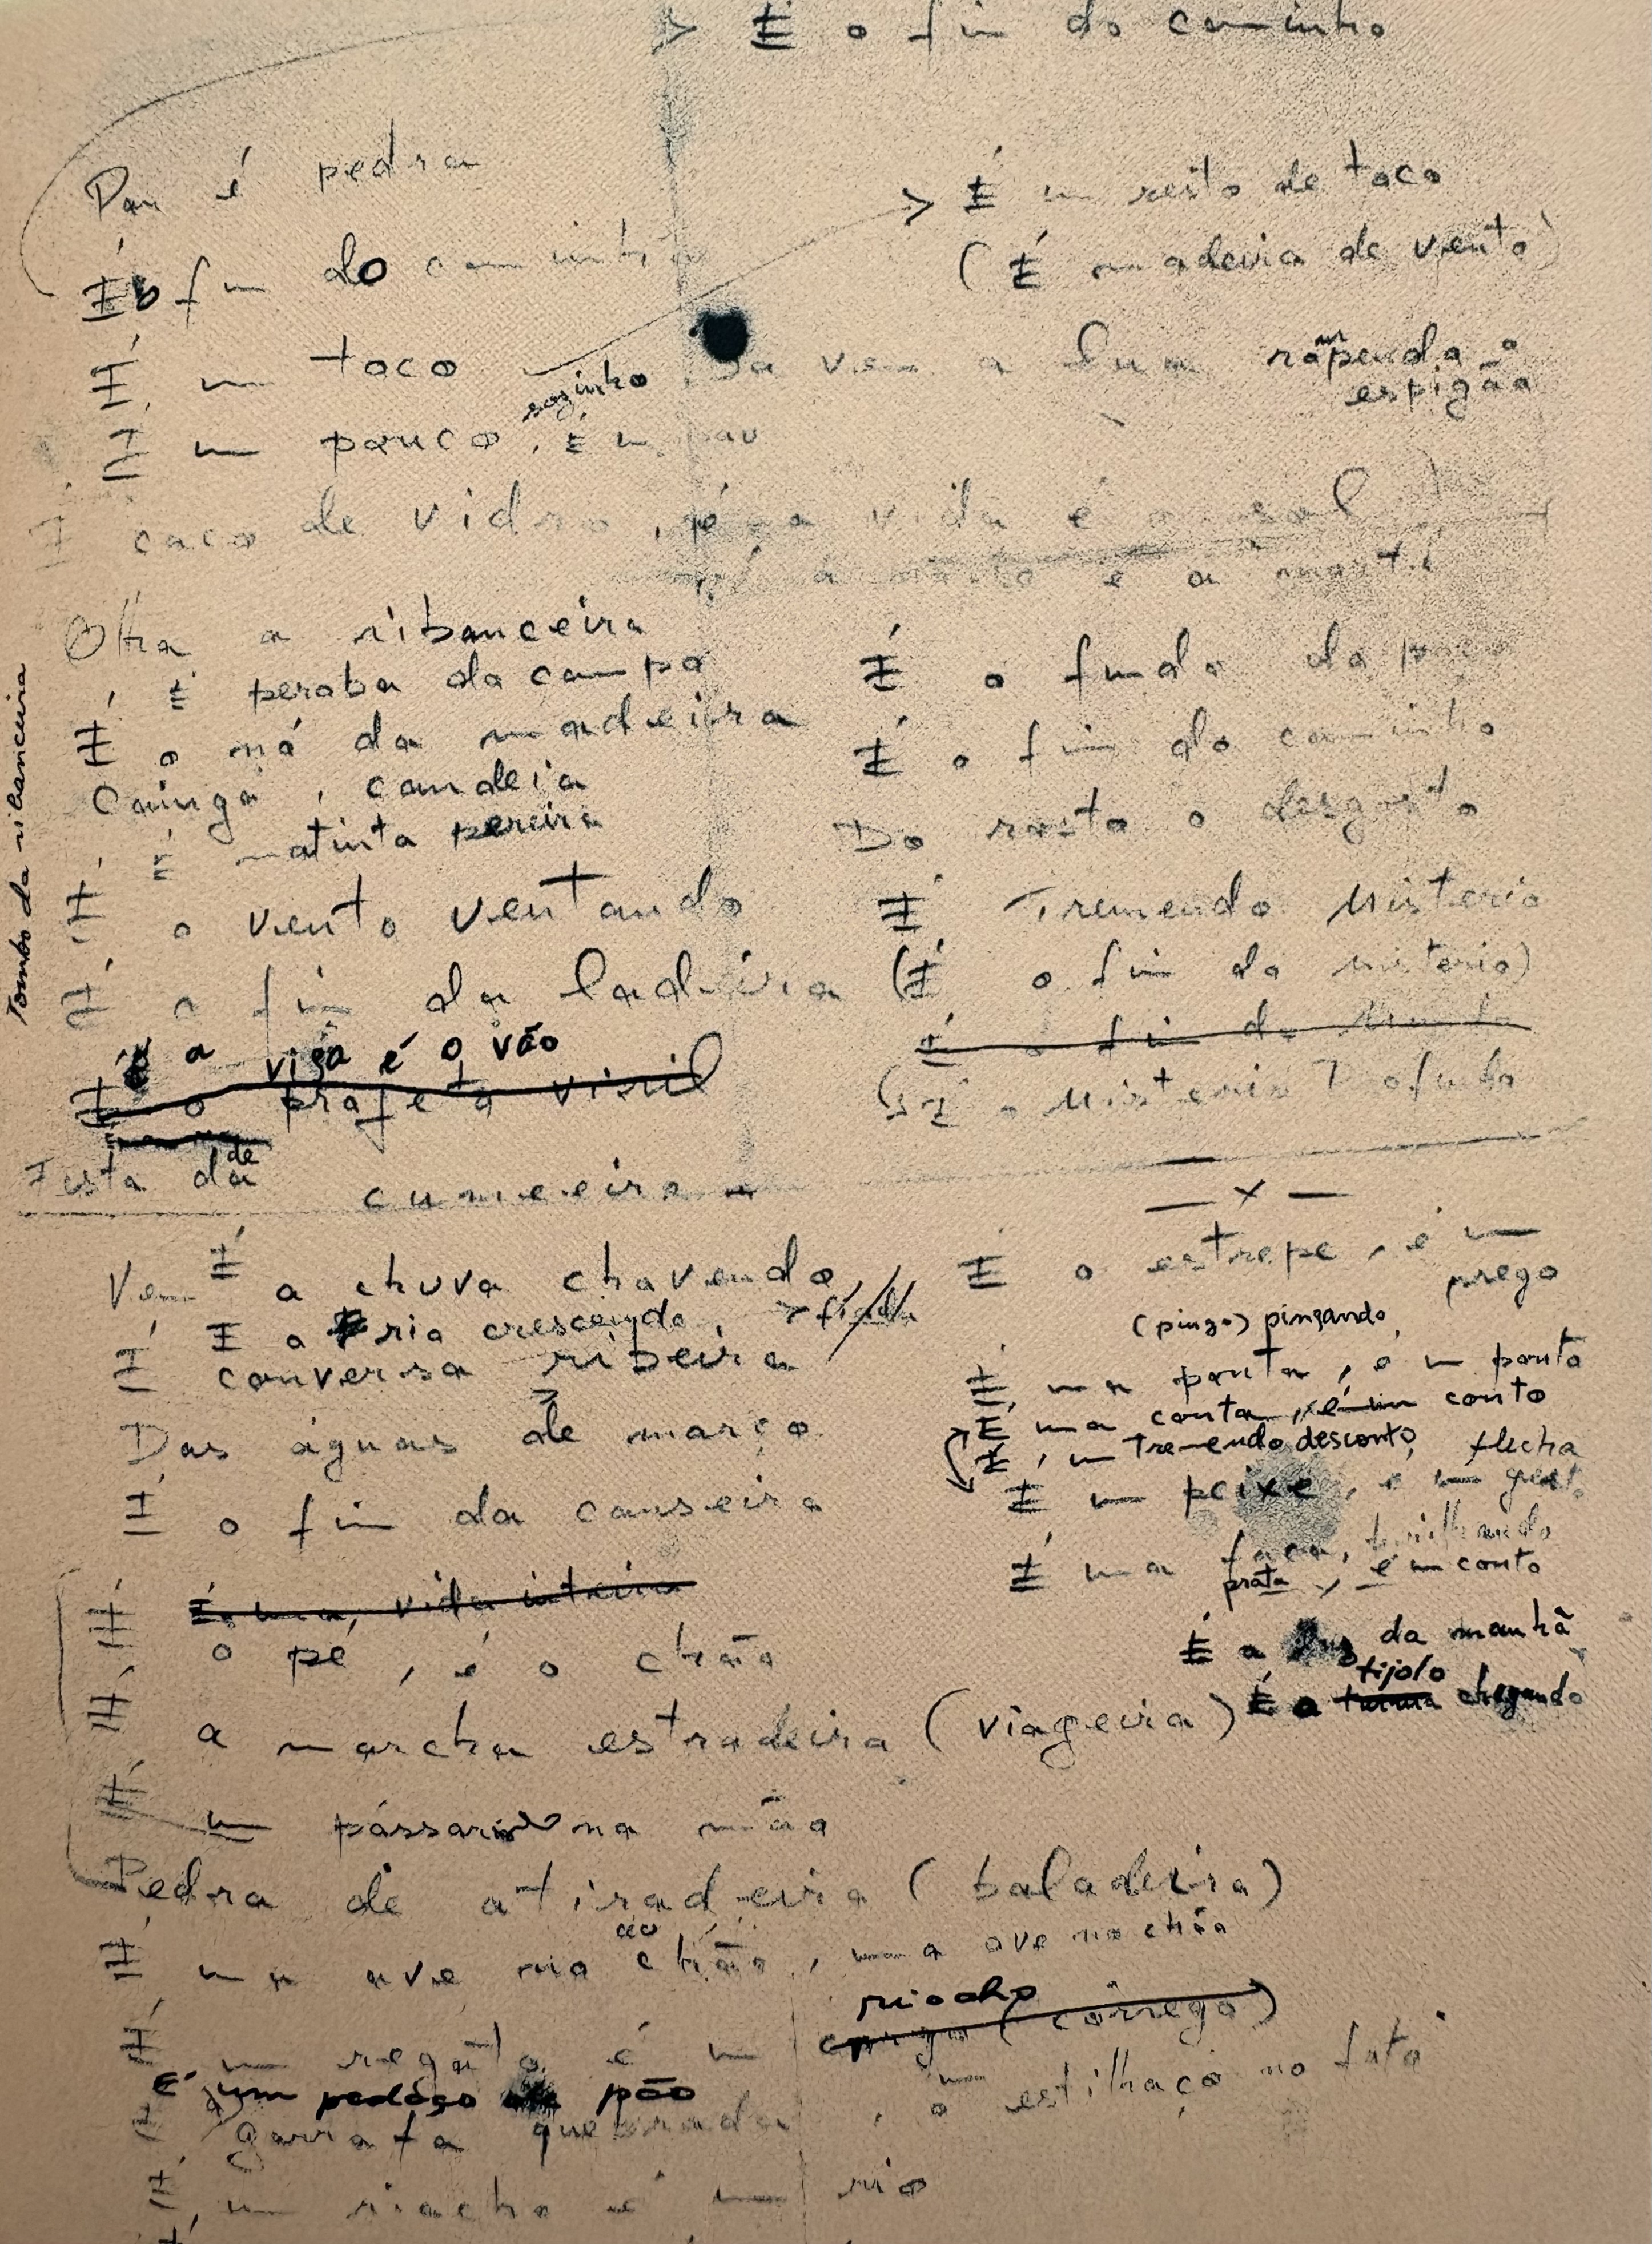 É o fim do caminho
Pau é pedra
É o fim do caminho
É um toco
sozinho
É um pouco, É um pau
É um resto de toco
(É madeira de vento)
a lua
espigão
É caco de vidro, é a vida é o sol
é a morte
Olha a ribanceira
É peroba do campo
É o nó da madeira
Caingá, candeia
É matinta pereira
É o vento ventando
É o fim da ladeira
É a viga é o vão
É o projeto visil
Festa da
de
cumeeira
Tombo da ribanceira
É o fundo do poço
É o fim do caminho
Do rosto o desgosto
É Tremendo Misterio
(É o fim do misterio)
É o fim do
o Misterio Profundo
Vem É a chuva chovendo,
É o rio crescendo,
É conversa ribeira
Das águas de março
É o fim da canseira
É uma vida inteira
o pé, é o chão
a marcha estradeira (viageira)
É um pássaro na mão
Pedra de atiradeira (baladeira)
ao
É uma ave no chão, uma ave no chão
riacho
É um regato é um (córrego)
É um pedaço de pão
garrafa quebrada, o estilhaço no
É um riacho é um rio
— x —
É o estrepe, é um
prego
(pingo) pingando,
É uma ponta, é um ponto
É uma conta, é um conto
É, um Tremendo desconto,
É um peixe, é um gesto
É uma brilhando
prata, é um conto
É a luz da manhã
tijolo
É o chegando